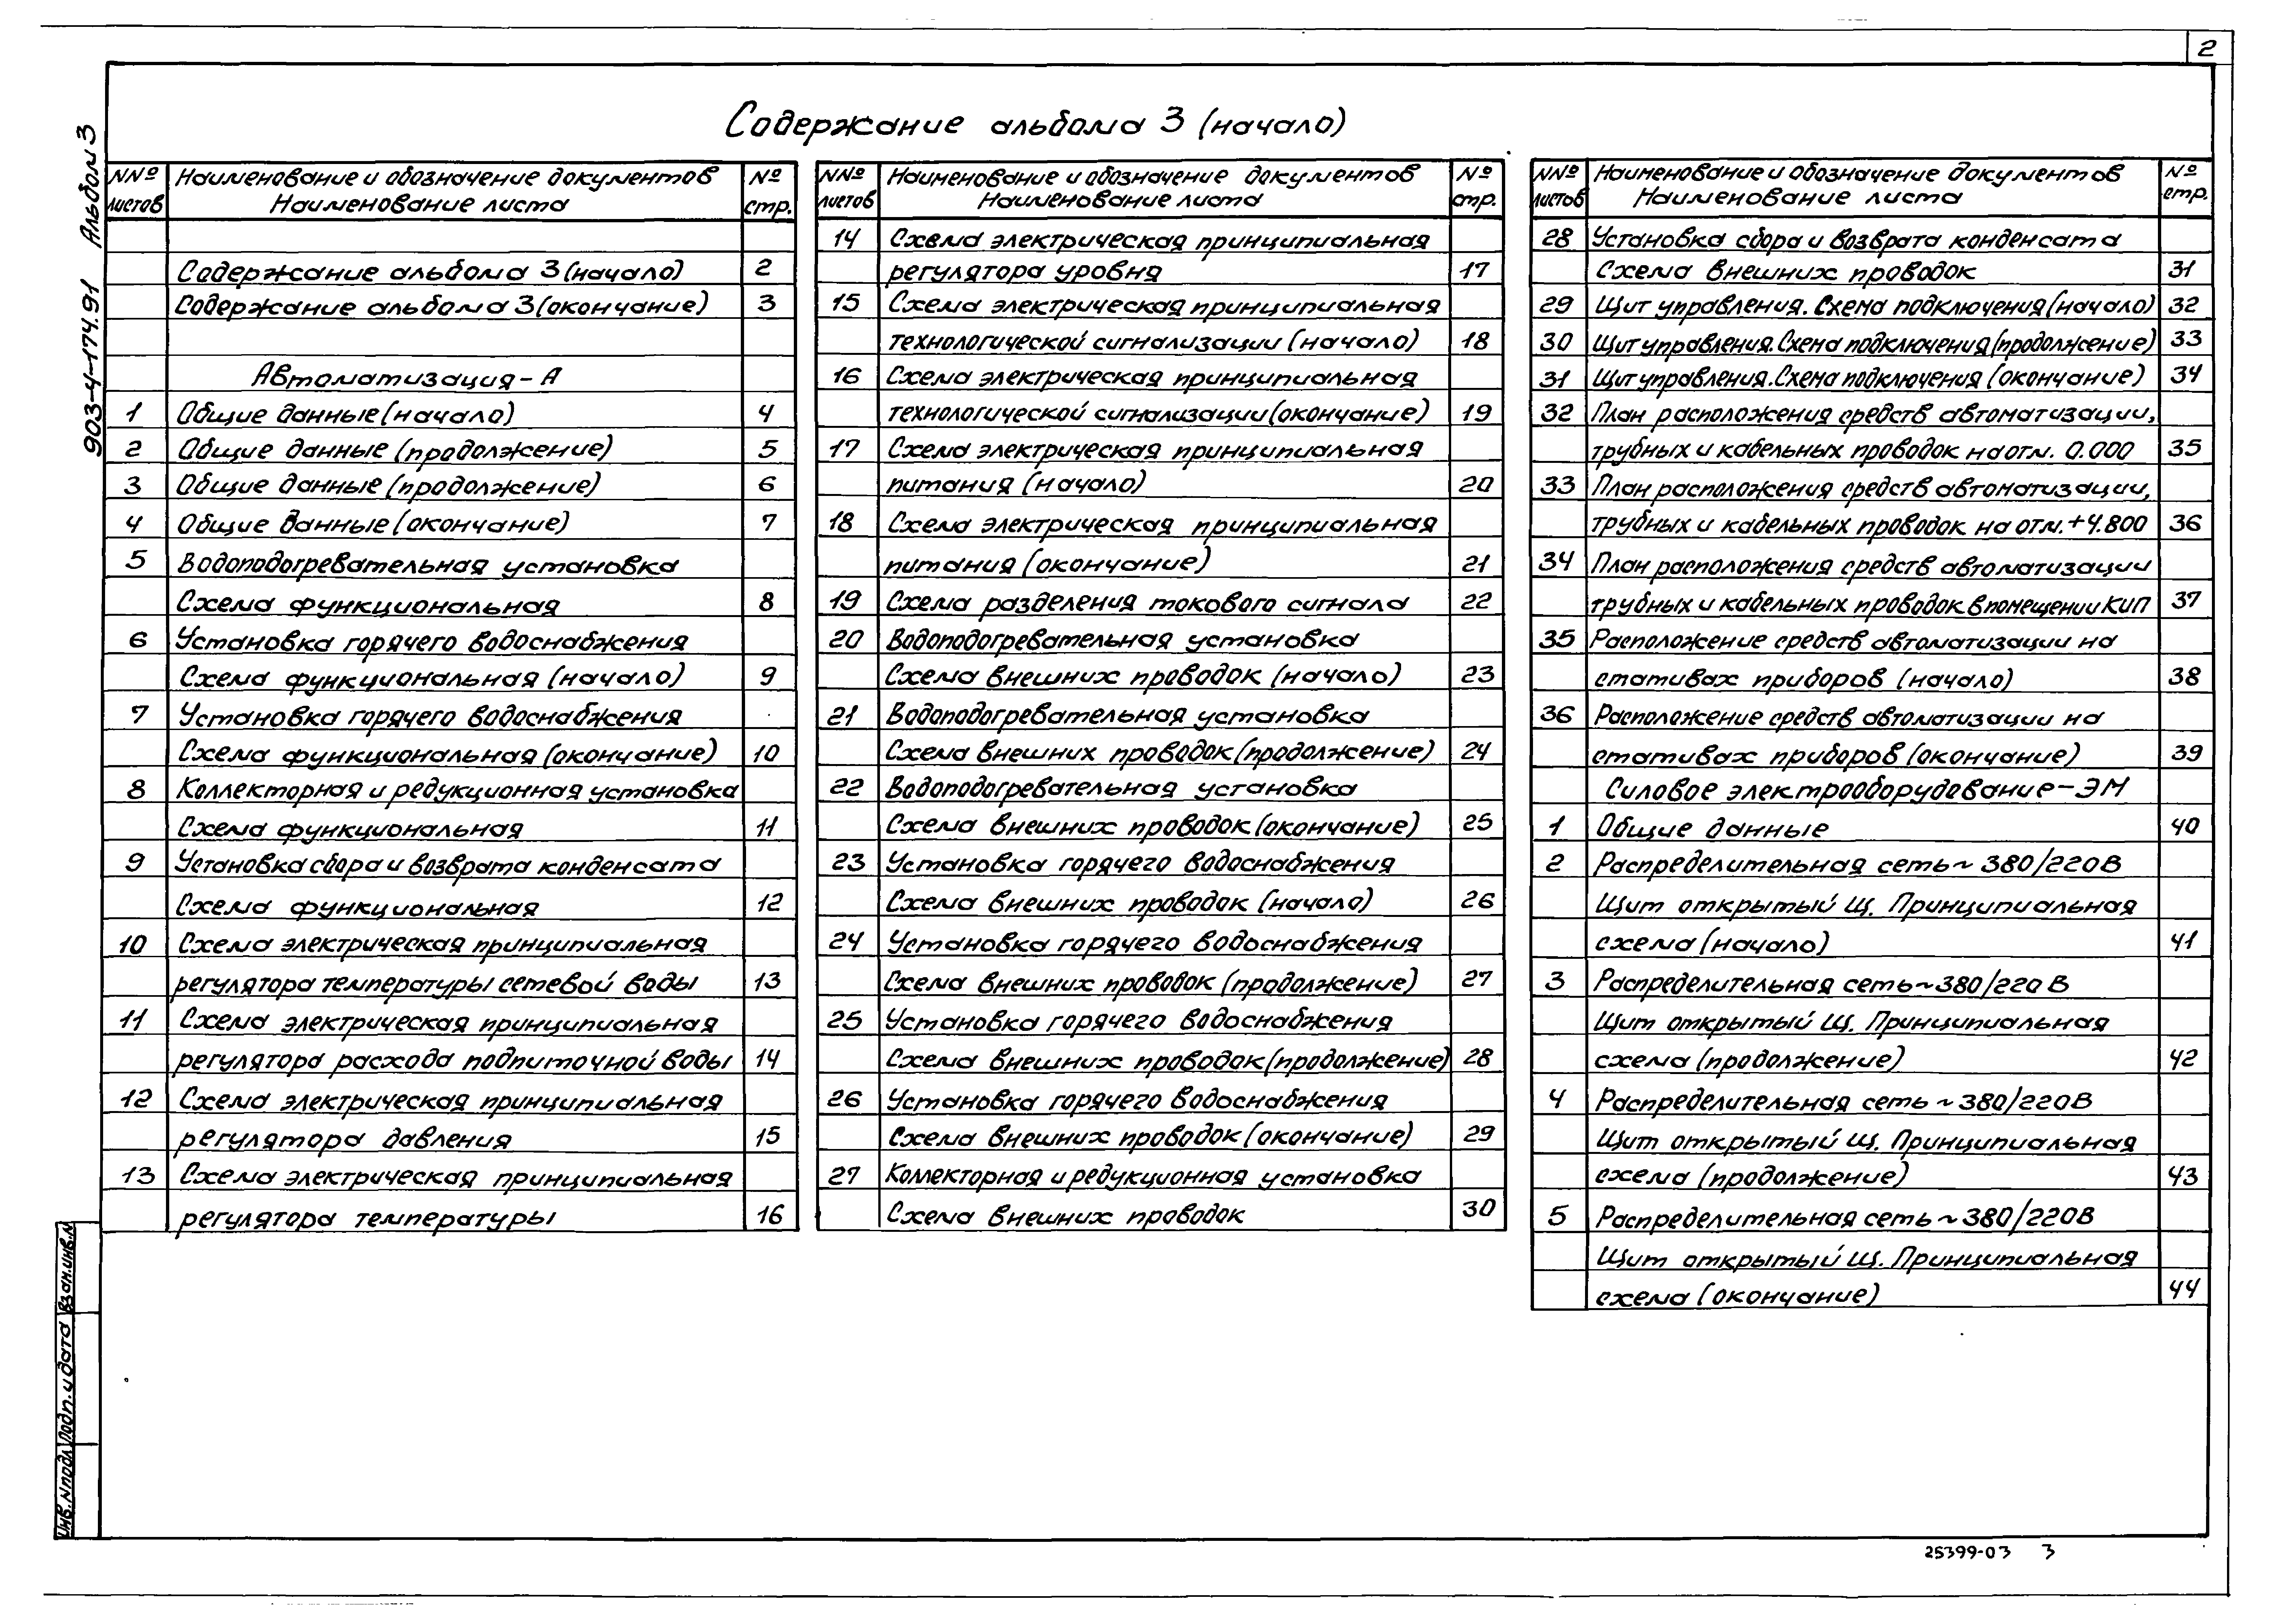 2
Содержание альбома 3 (начало)
903-4-174.91 Альбом 3
NNº листов
Наименование и обозначение документов
Наименование листа
Nº стр.
Содержание альбома 3 (начало) 2
Содержание альбома 3 (окончание) 3
Автоматизация-А
1 Общие данные (начало) 4
2 Общие данные (продолжение) 5
3 Общие данные (продолжение) 6
4 Общие данные (окончание) 7
5 Водоподогревательная установка
Схема функциональная 8
6 Установка горячего водоснабжения
Схема функциональная (начало) 9
7 Установка горячего водоснабжения
Схема функциональная (окончание) 10
8 Коллекторная и редукционная установка
Схема функциональная 11
9 Установка сбора и возврата конденсата
Схема функциональная 12
10 Схема электрическая принципиальная
регулятора температуры сетевой воды 13
11 Схема электрическая принципиальная
регулятора расхода подпиточной воды 14
12 Схема электрическая принципиальная
регулятора давления 15
13 Схема электрическая принципиальная
регулятора температуры 16
NNº листов
Наименование и обозначение документов
Наименование листа
Nº стр.
14 Схема электрическая принципиальная
регулятора уровня 17
15 Схема электрическая принципиальная
технологической сигнализации (начало) 18
16 Схема электрическая принципиальная
технологической сигнализации (окончание) 19
17 Схема электрическая принципиальная
питания (начало) 20
18 Схема электрическая принципиальная
питания (окончание) 21
19 Схема разделения токового сигнала 22
20 Водоподогревательная установка
Схема внешних проводок (начало) 23
21 Водоподогревательная установка
Схема внешних проводок (продолжение) 24
22 Водоподогревательная установка
Схема внешних проводок (окончание) 25
23 Установка горячего водоснабжения
Схема внешних проводок (начало) 26
24 Установка горячего водоснабжения
Схема внешних проводок (продолжение) 27
25 Установка горячего водоснабжения
Схема внешних проводок (продолжение) 28
26 Установка горячего водоснабжения
Схема внешних проводок (окончание) 29
27 Коллекторная и редукционная установка
Схема внешних проводок 30
NNº листов
Наименование и обозначение документов
Наименование листа
Nº стр.
28 Установка сбора и возврата конденсата
Схема внешних проводок 31
29 Щит управления. Схема подключения (начало) 32
30 Щит управления. Схема подключения (продолжение) 33
31 Щит управления. Схема подключения (окончание) 34
32 План расположения средств автоматизации,
трубных и кабельных проводок на отм. 0.000 35
33 План расположения средств автоматизации,
трубных и кабельных проводок на отм. +4.800 36
34 План расположения средств автоматизации
трубных и кабельных проводок в помещении КИП 37
35 Расположение средств автоматизации на
стативах приборов (начало) 38
36 Расположение средств автоматизации на
стативах приборов (окончание) 39
Силовое электрооборудование-ЭМ
1 Общие данные 40
2 Распределительная сеть ~ 380/220В
Щит открытый Щ. Принципиальная
схема (начало) 41
3 Распределительная сеть ~ 380/220 В
Щит открытый Щ. Принципиальная
схема (продолжение) 42
4 Распределительная сеть ~ 380/220В
Щит открытый Щ. Принципиальная
схема (продолжение) 43
5 Распределительная сеть ~ 380/220В
Щит открытый Щ. Принципиальная
схема (окончание) 44
Инв. N подл. Подп. и дата Взам. инв. N
25399-03 3